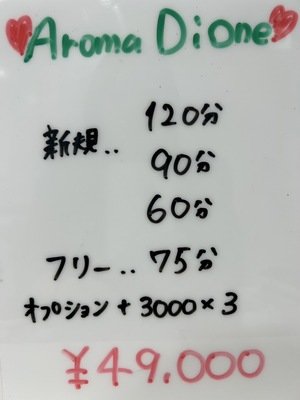 Aroma Dione
120分
新規.. 90分
60分
フリー.. 75分
オプション + 3000×3
¥49.000